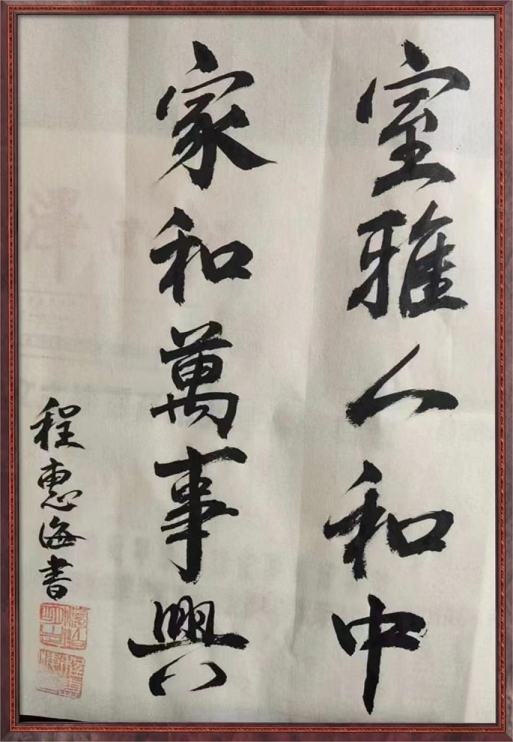 室雅人和中
家和萬事興
程惠海書